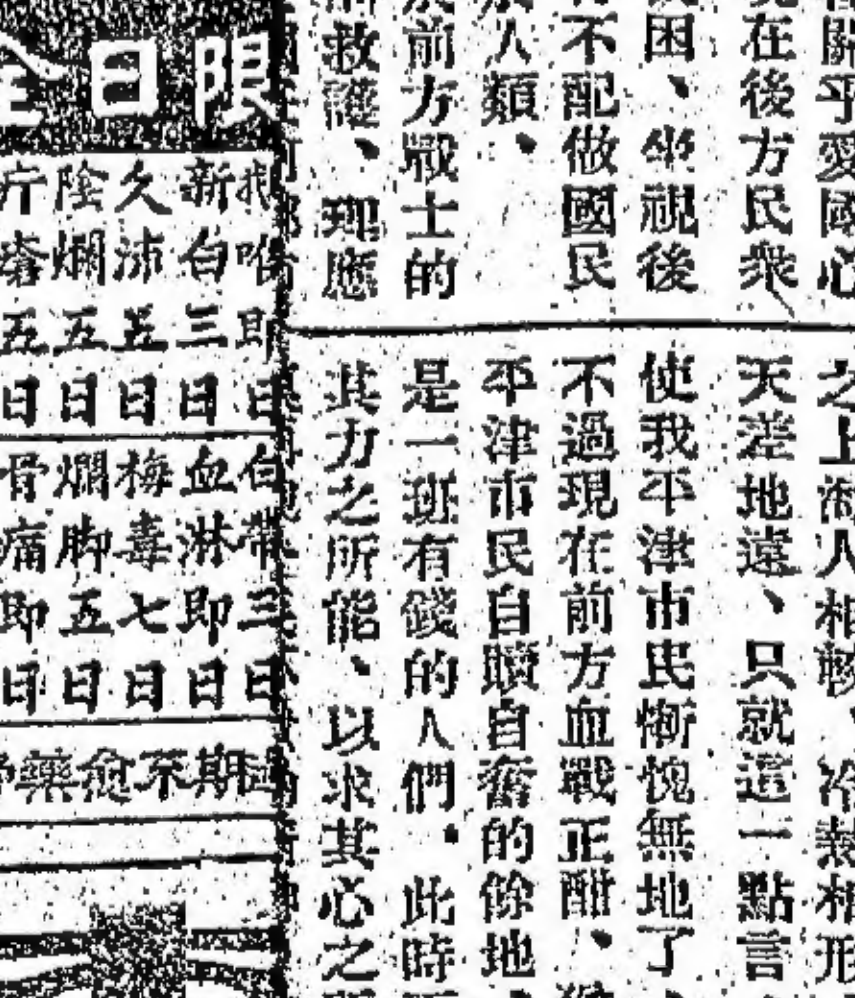 關乎愛國心
在後方民衆
困、坐視後
不配做國民
人類、
前方戰士的
救護、理應
之上海人相較、冷熱相形
天差地遠、只就這一點言
使我平津市民慚愧無地了
不過現在前方血戰正酣、
平津市民自贖自奮的餘地
是一班有錢的人們．此時
其力之所能、以求其心之
限日
即日
新白三日
久沛五日
陰爛五日
五日
白帶三日
血淋即日
梅毒七日
爛脚五日
骨痛即日
期不愈藥